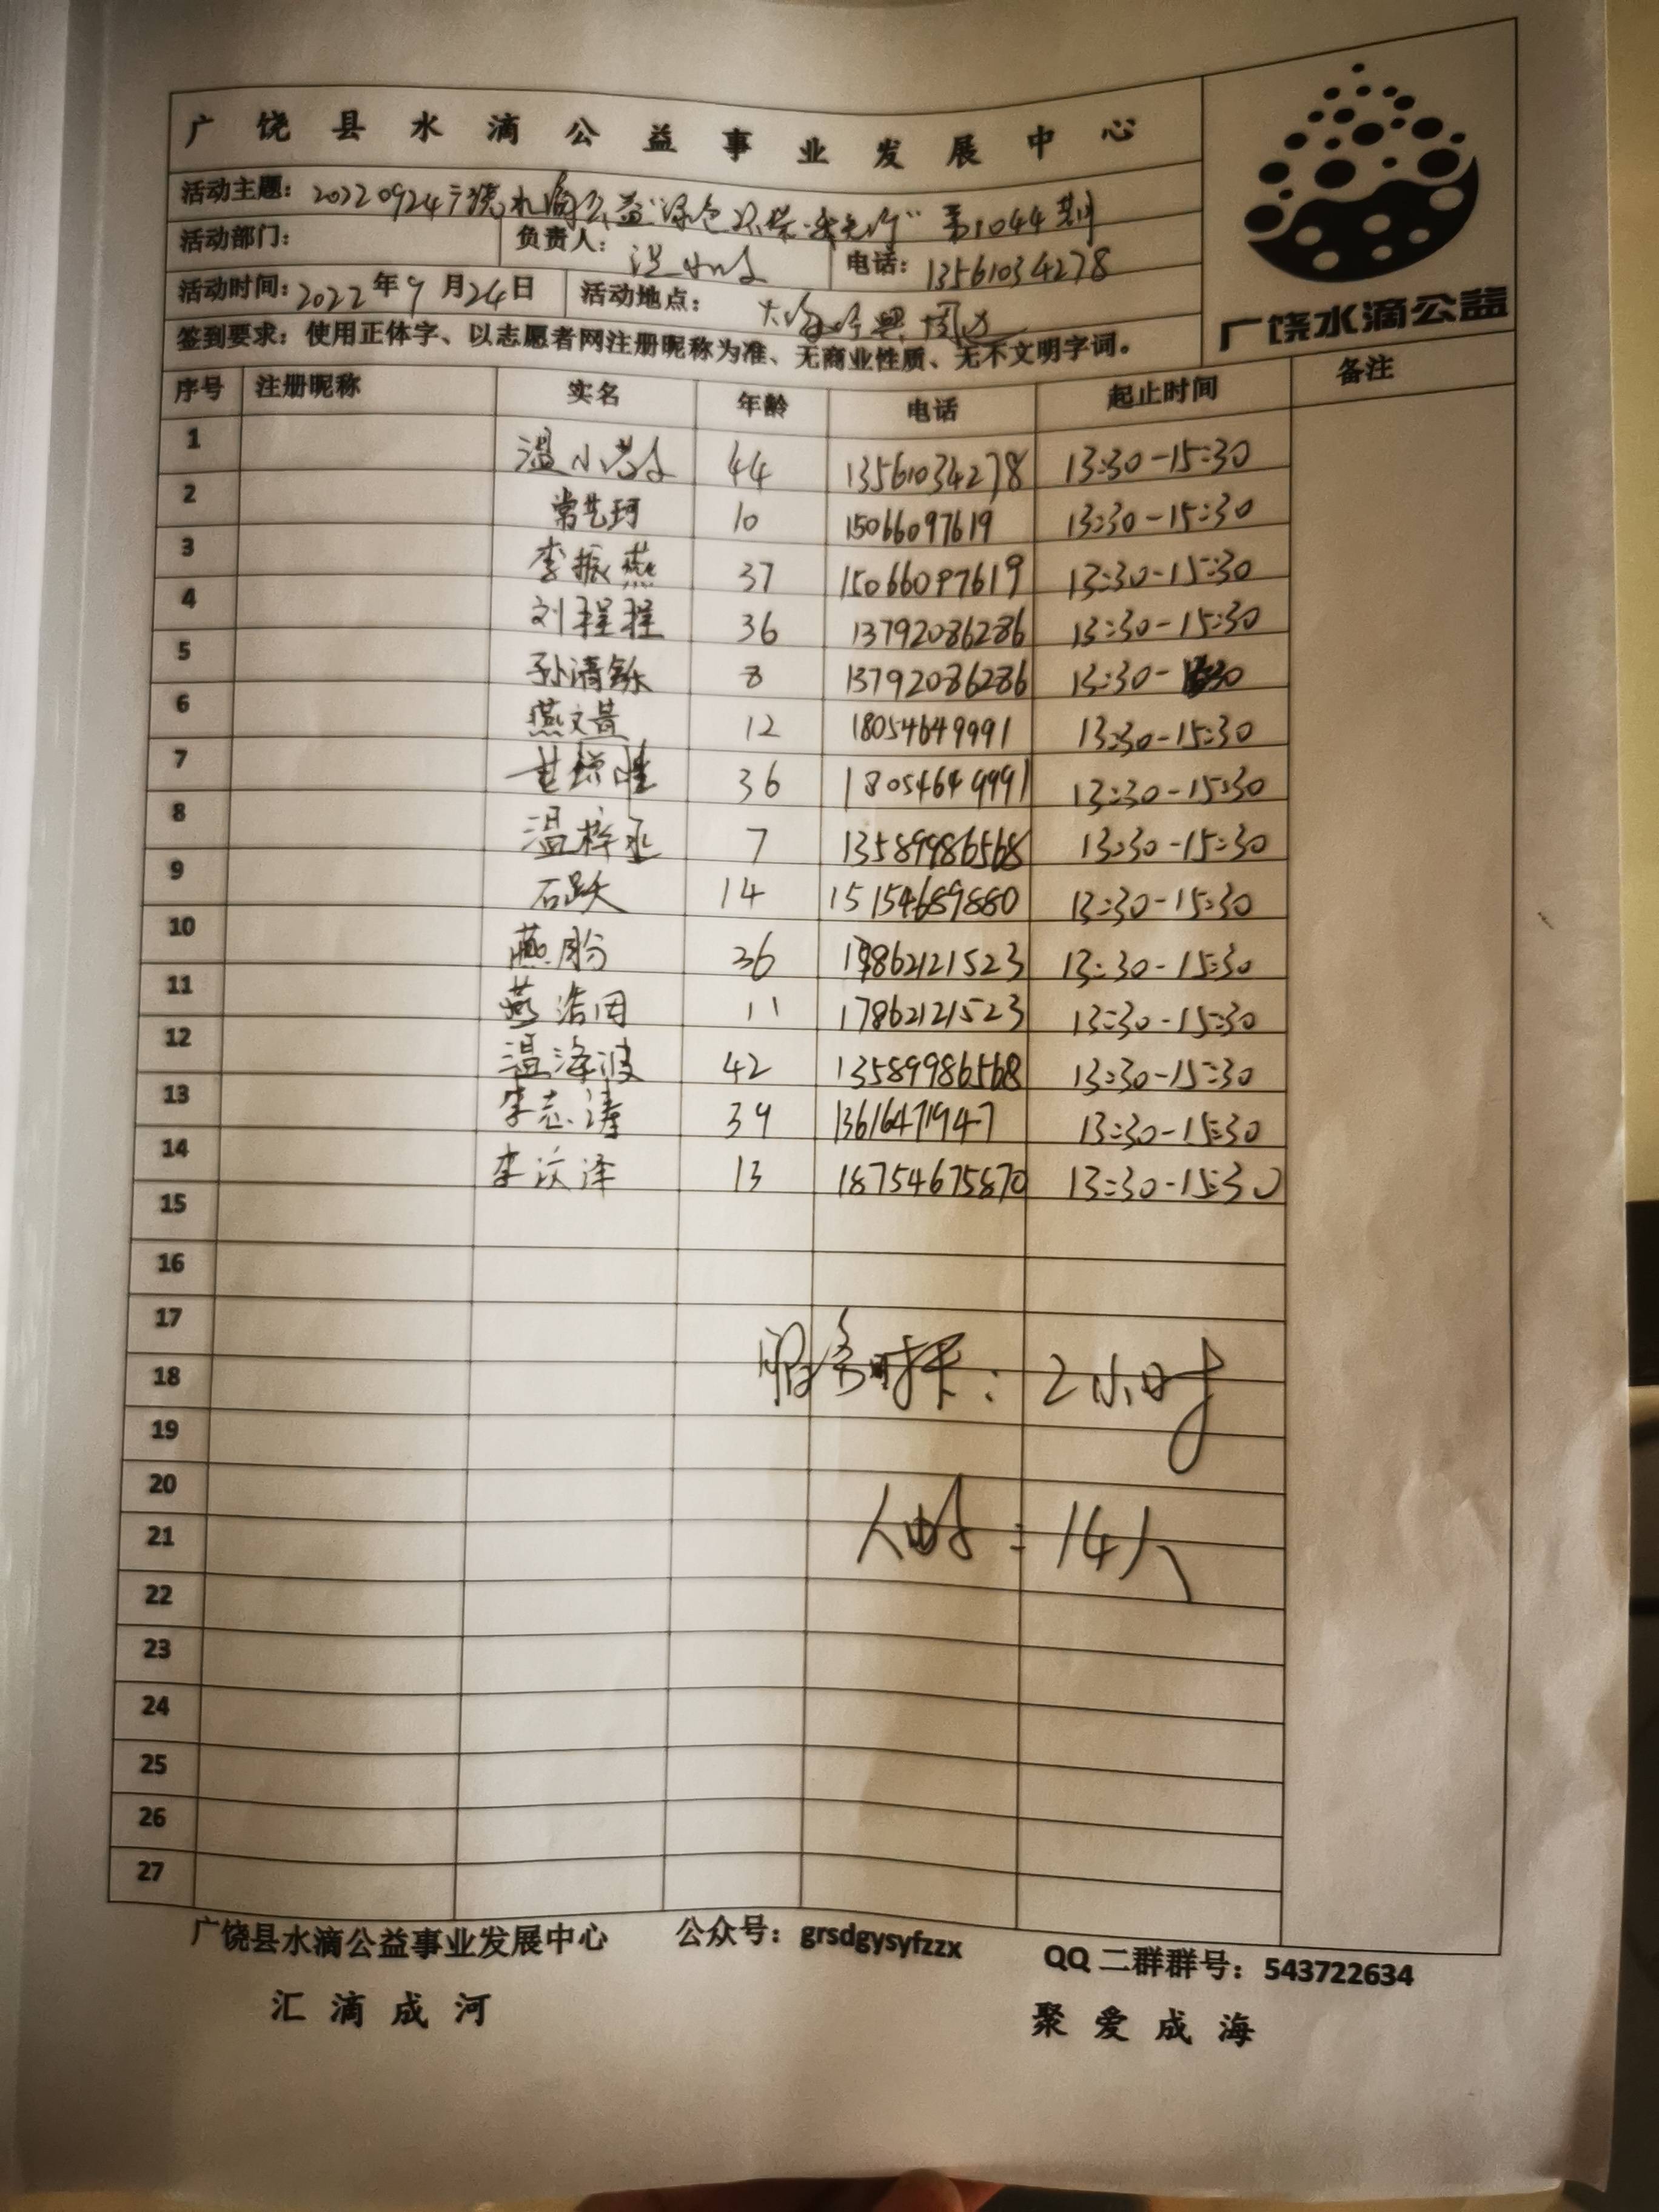 广饶县水滴公益事业发展中心
活动主题：20220924广饶水滴公益“绿色环保·我先行”第1044期
活动部门： 负责人： 电话：13561034278
活动时间：2022年9月24日 活动地点：周边
签到要求：使用正体字、以志愿者网注册昵称为准、无商业性质、无不文明字词。
广饶水滴公益
序号 注册昵称 实名 年龄 电话 起止时间 备注
1 温小 44 13561034278 13:30-15:30
2 常艺珂 10 15066097619 13:30-15:30
3 李振燕 37 15066097619 13:30-15:30
4 刘程程 36 13792086286 13:30-15:30
5 孙清 8 13792086286 13:30-
6 燕文 12 18054649991 13:30-15:30
7 36 18054649991 13:30-15:30
8 温梓丞 7 13589986568 13:30-15:30
9 石跃 14 15154689880 13:30-15:30
10 燕盼 36 17862121523 13:30-15:30
11 燕浩田 11 17862121523 13:30-15:30
12 温海波 42 13589986568 13:30-15:30
13 李志涛 39 13616471947 13:30-15:30
14 李沃泽 13 18754675870 13:30-15:30
15
16
17
18 服务时长：2小时
19
20
21 人数：14人
22
23
24
25
26
27
广饶县水滴公益事业发展中心 公众号：grsdgysyfzzx QQ二群群号：543722634
汇滴成河 聚爱成海